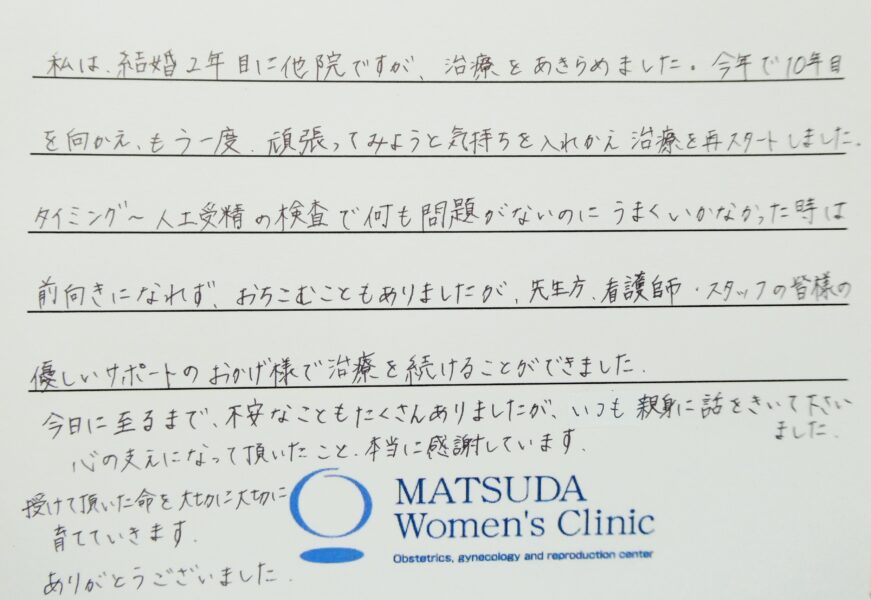 私は、結婚2年目に他院ですが、治療をあきらめました。今年で10年目
を向かえ、もう一度、頑張ってみようと気持ちを入れかえ治療を再スタートしました。
タイミング～人工受精の検査で何も問題がないのにうまくいかなかった時は
前向きになれず、おちこむこともありましたが、先生方、看護師・スタッフの皆様の
優しいサポートのおかげ様で治療を続けることができました。
今日に至るまで、不安なこともたくさんありましたが、いつも親身に話をきいて下さい
ました。
心の支えになって頂いたこと、本当に感謝しています。
授けて頂いた命を大切に大切に
育てていきます。
ありがとうございました。
MATSUDA
Women's Clinic
Obstetrics, gynecology and reproduction center